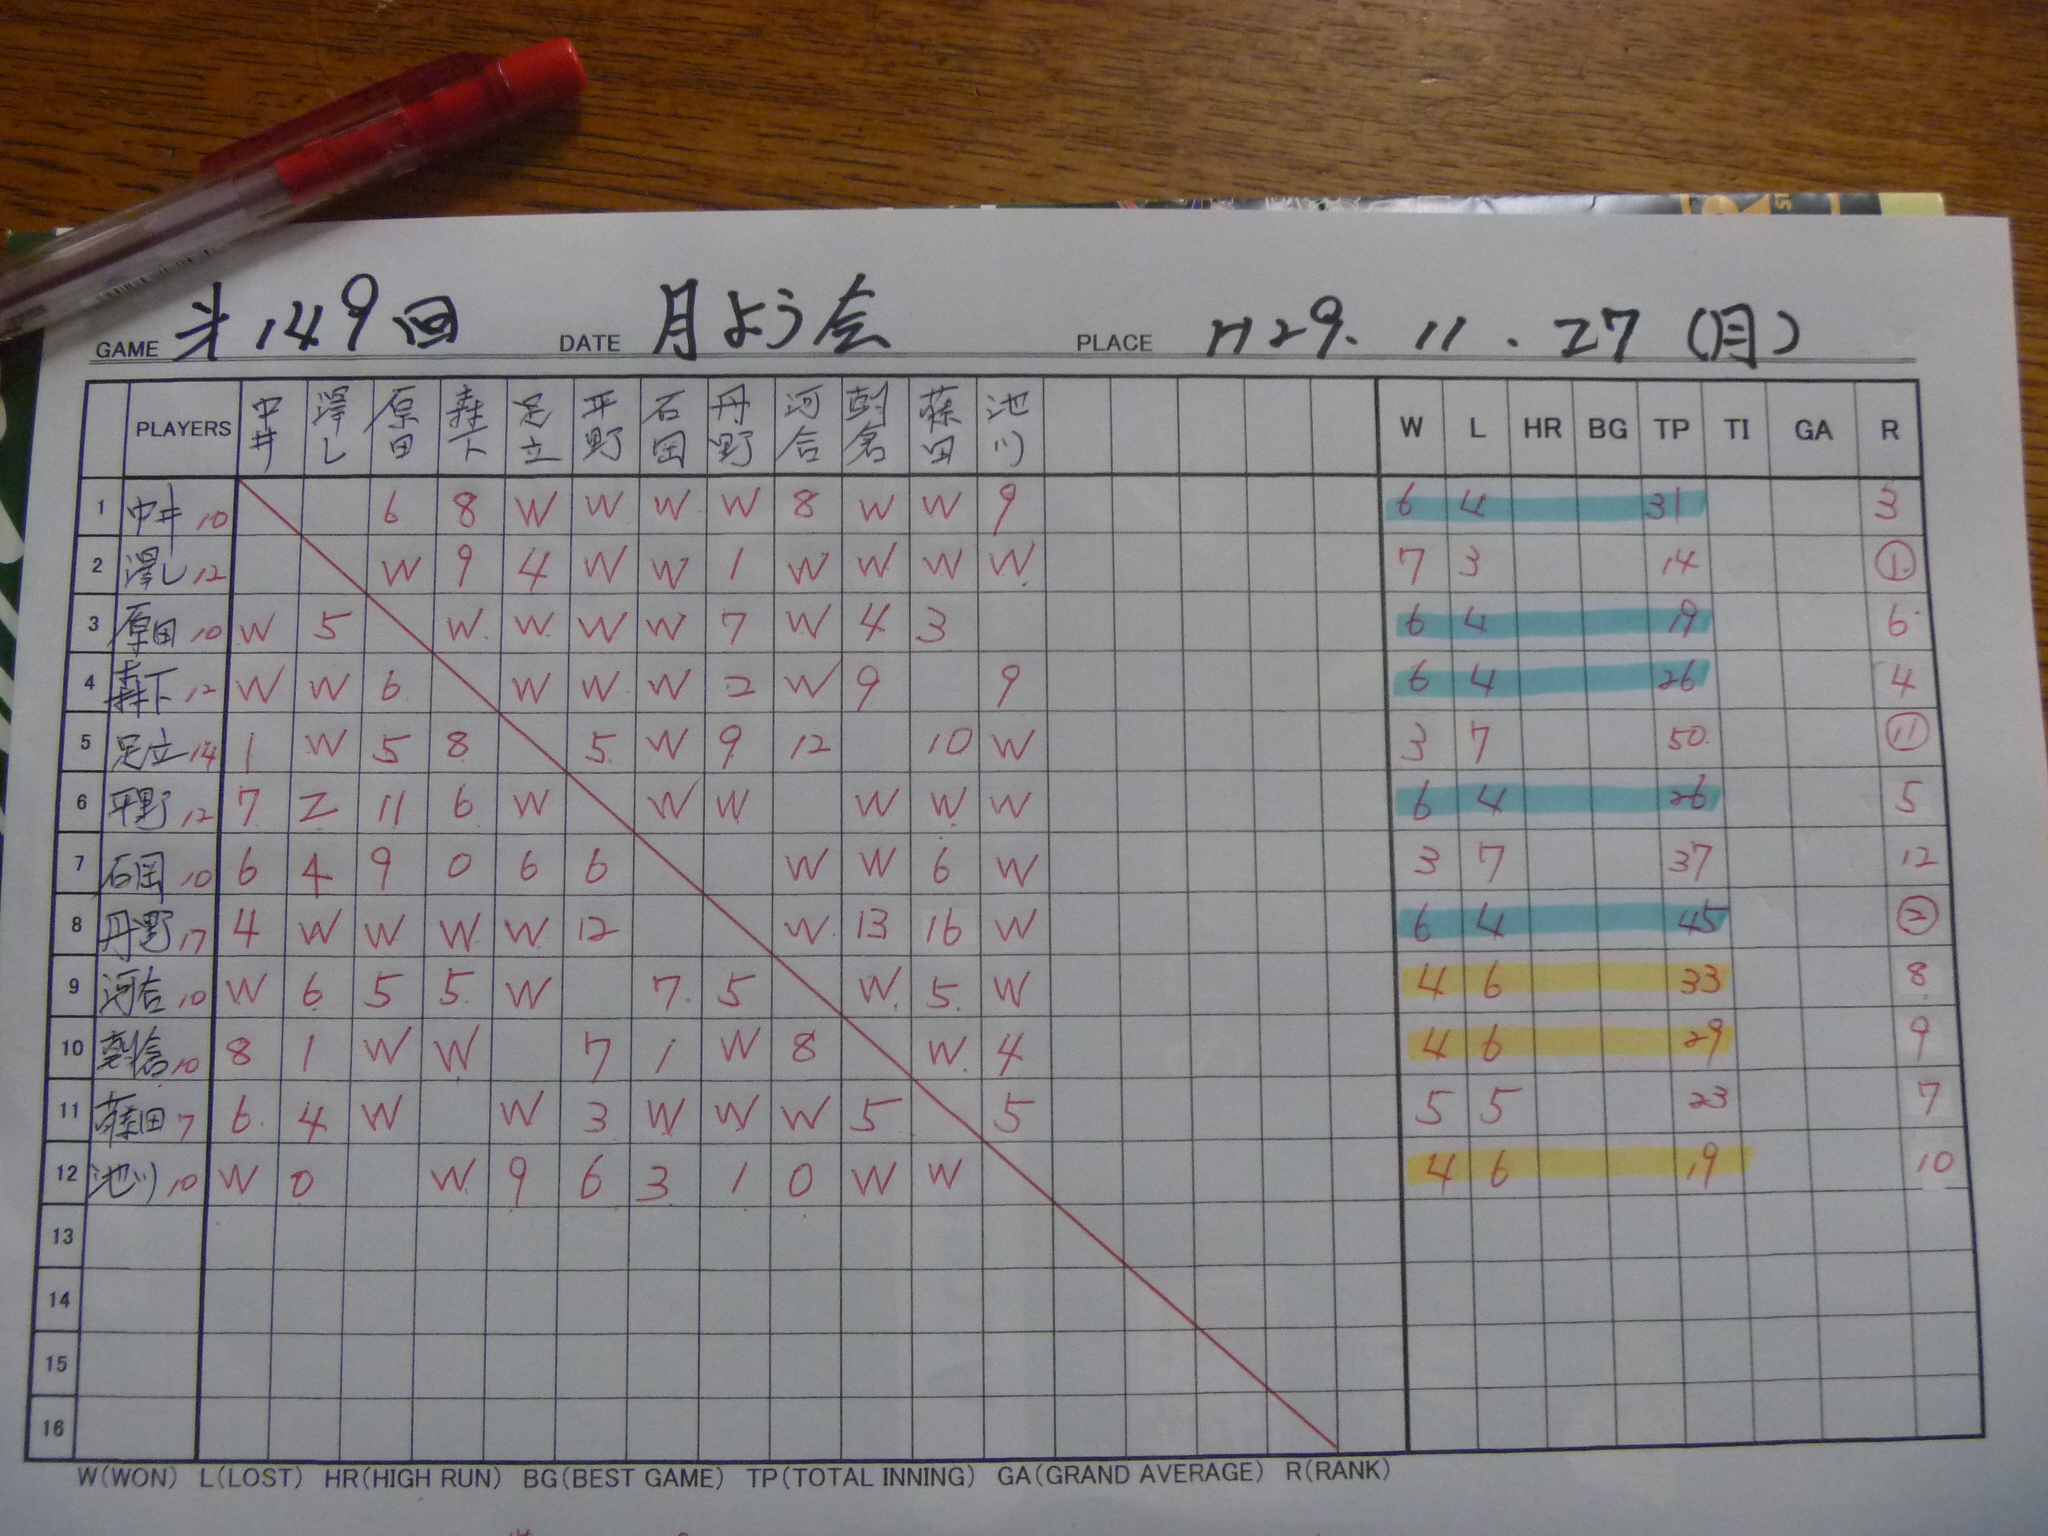 GAME 第149回 DATE 月よう会 PLACE H29. 11. 27 (月)
PLAYERS 中井 澤し 原田 森下 足立 平野 石岡 丹野 河合 朝倉 藤田 池川 W L HR BG TP TI GA R
1 中井 10 6 8 W W W W 8 W W 9 6 4 31 3
2 澤し 12 W 9 4 W W 1 W W W W 7 3 14 ①
3 原田 10 W 5 W W W W 7 W 4 3 6 4 19 6
4 森下 12 W W 6 W W W 2 W 9 9 6 4 26 4
5 足立 14 1 W 5 8 5 W 9 12 10 W 3 7 50 ⑪
6 平野 12 7 2 11 6 W W W W W W 6 4 26 5
7 石岡 10 6 4 9 0 6 6 W W 6 W 3 7 37 12
8 丹野 17 4 W W W W 12 W 13 16 W 6 4 45 ②
9 河合 10 W 6 5 5 W 7 5 W 5 W 4 6 33 8
10 朝倉 10 8 1 W W 7 1 W 8 W 4 4 6 29 9
11 藤田 7 6 4 W W 3 W W W 5 5 5 5 23 7
12 池川 10 W 0 W 9 6 3 1 0 W W 4 6 19 10
13
14
15
16
W(WON) L(LOST) HR(HIGH RUN) BG(BEST GAME) TP(TOTAL INNING) GA(GRAND AVERAGE) R(RANK)